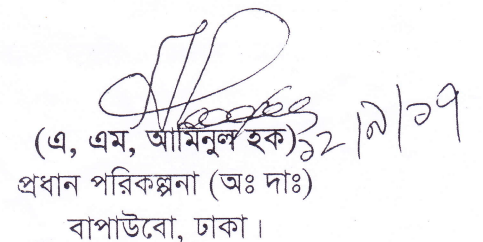 (এ, এম, আমিনুল হক) ১২/৯/১৭
প্রধান পরিকল্পনা (অঃ দাঃ)
বাপাউবো, ঢাকা।